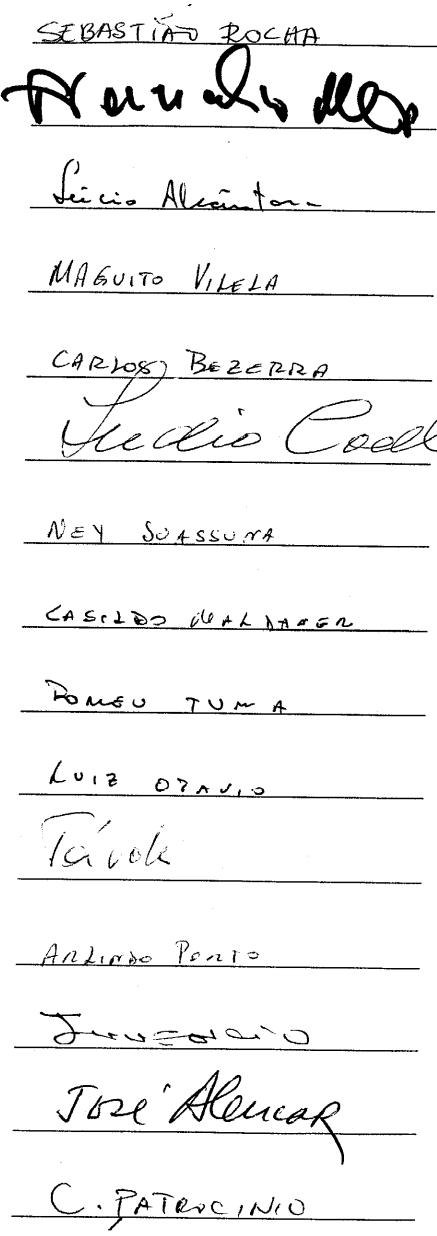 SEBASTIÃO ROCHA
Lúcio Alcântara
MAGUITO VILELA
CARLOS BEZERRA
Ludio Coel
NEY SUASSUNA
CASILDO MALDANER
ROMEU TUMA
LUIZ OTAVIO
Távola
ARLINDO PORTO
Juvencio
José Alencar
C. PATROCINIO